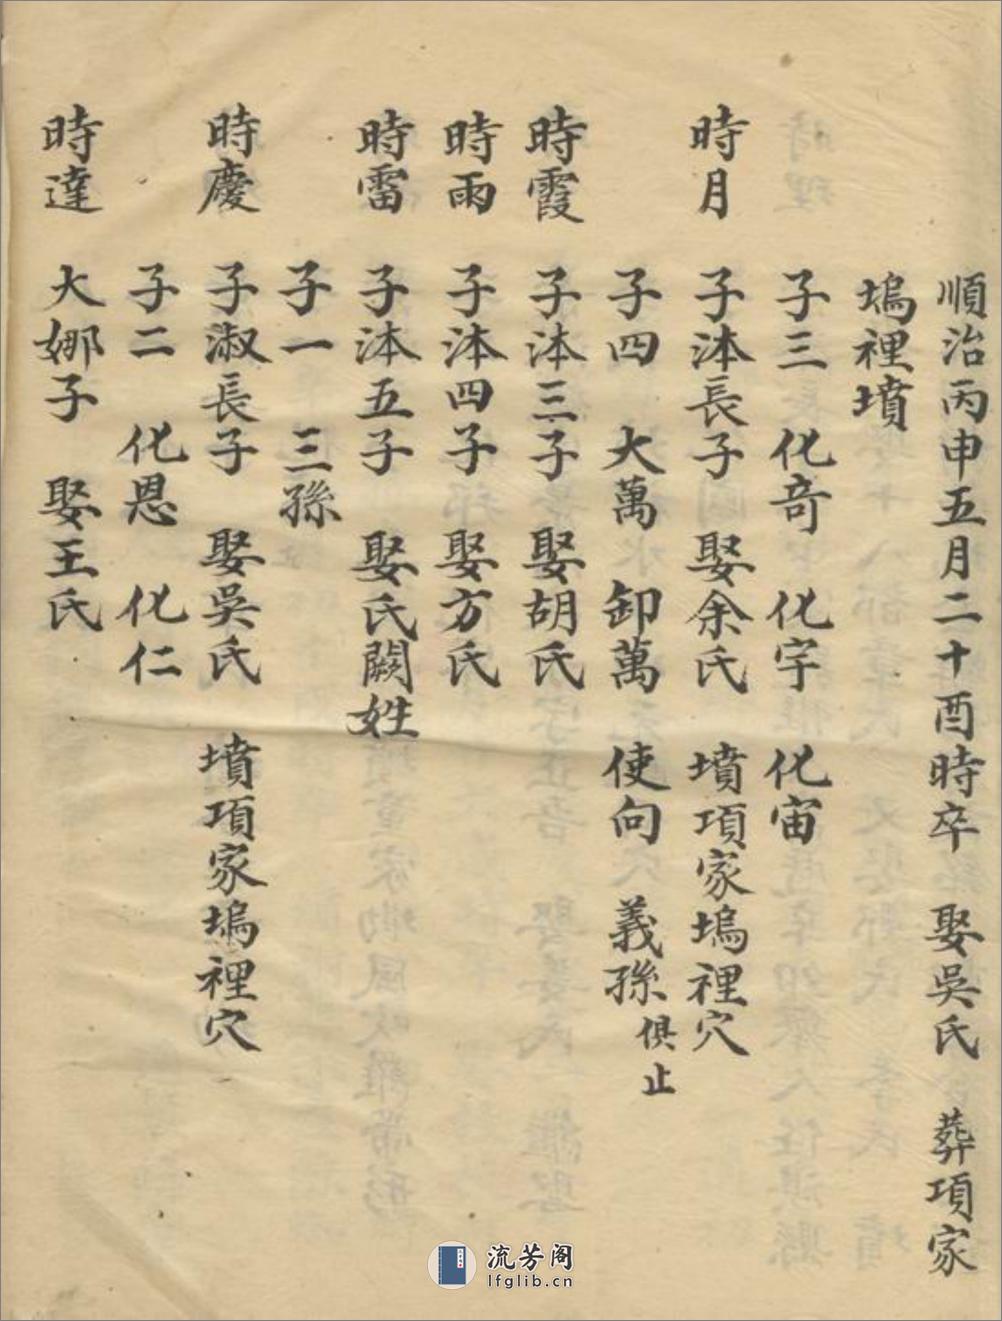 順治丙申五月二十酉時卒　娶吳氏　葬項家
塢裡墳
子三　化奇　化宇　化宙
時月　子沐長子　娶余氏　墳項家塢裡穴
子四　大萬　卸萬　使向　義孫俱止
時霞　子沐三子　娶胡氏
時雨　子沐四子　娶方氏
時雷　子沐五子　娶氏闕姓
子一　三孫
時慶　子淑長子　娶吳氏　墳項家塢裡穴
子二　化恩　化仁
時達　大娜子　娶王氏
流芳阁
lfglib.cn